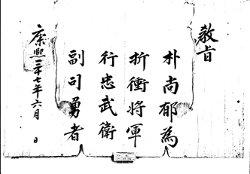 教旨
朴尚郁為
折衝將軍
行忠武衛
副司勇者
康熙二十七年六月 日